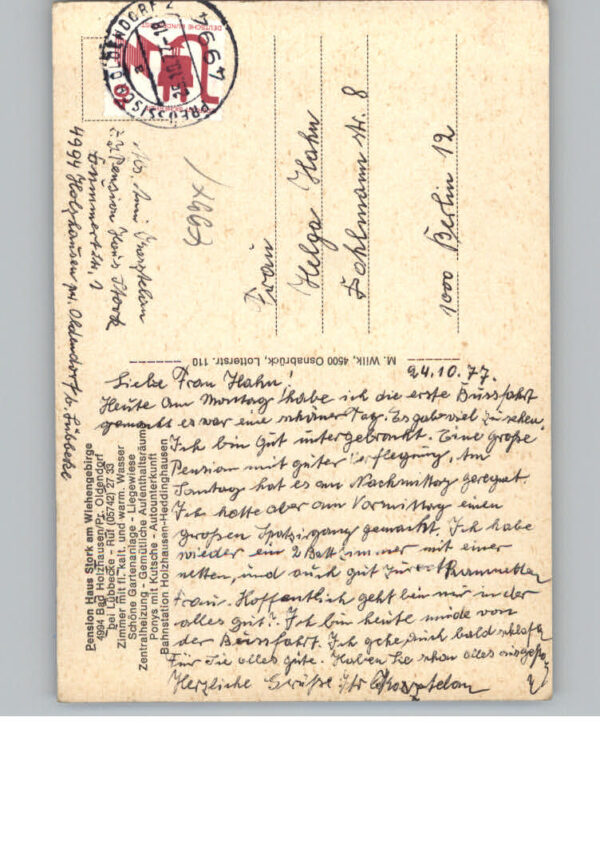 4994
PREUSSISCH OLDENDORF 2
25.10.77-18
a
DEUTSCHE BUNDESPOST
z.Z. Pension Haus Stork
4994 Holzhausen pr. Oldendorf b. Lübbecke
Frau
Helga Hahn
Dahlmann str. 8
1000 Berlin 12
M. Wilk, 4500 Osnabrück, Lotterstr. 110
Pension Haus Stork am Wiehengebirge
4994 Bad Holzhausen/Pr. Oldendorf
bei Lübbecke - Ruf (05742) 27 33
Zimmer mit fl. kalt. und warm. Wasser
Schöne Gartenanlage - Liegewiese
Zentralheizung - Gemütliche Aufenthaltsräume
Ponys mit Kutsche - Autounterkunft
Bahnstation Holzhausen-Heddinghausen
24.10.77.
Liebe Frau Hahn!
Heute am Montag habe ich die erste Bussfahrt
gemacht es war eine schöner Tag. Es gab viel zu sehen
Ich bin gut untergebracht. Eine große
Pension mit guter Verflegung, Am
Sontag hat es am Nachmittag geregnet.
Ich hatte aber am Vormittag einen
großen Spatzirgang gemacht. Ich habe
wieder ein 2 Bett zimmer mit einer
netten, und auch gut
Frau. Hoffentlich geht bei mir in der
alles gut? Ich bin heute müde von
der Bussfahrt. Ich gehe auch bald schlafen
Für Sie alles gute. Haben Sie schon alles
Herzliche Grüße Ihr